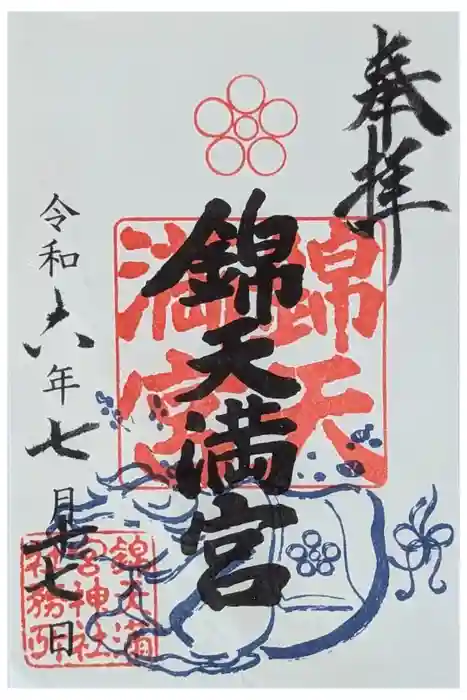 奉拝
錦天
満宮
錦天満宮
令和六年七月廿七日
錦天満
宮神社
社務所